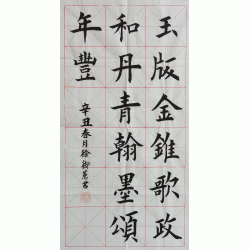 玉版金錐歌政
和丹青翰墨頌
年豐
辛丑春月徐御蕙書